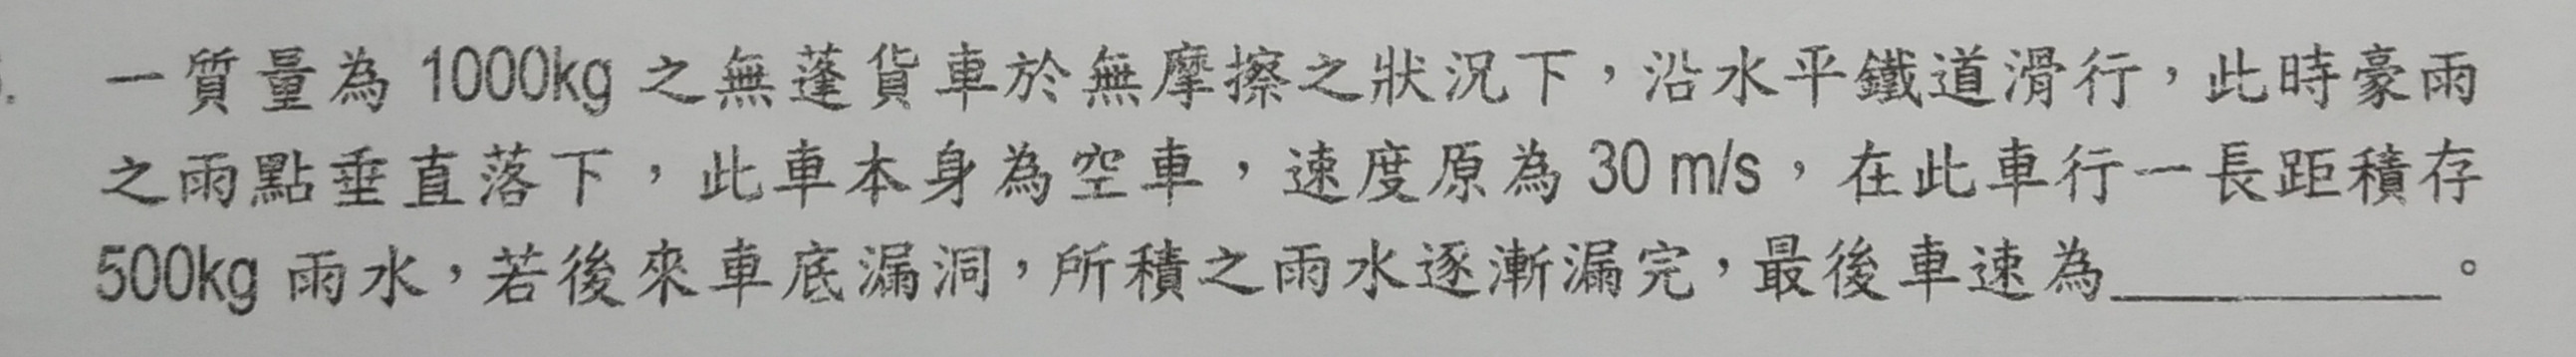 一質量為 1000kg 之無蓬貨車於無摩擦之狀況下，沿水平鐵道滑行，此時豪雨
之雨點垂直落下，此車本身為空車，速度原為 30 m/s，在此車行一長距積存
500kg 雨水，若後來車底漏洞，所積之雨水逐漸漏完，最後車速為__________。